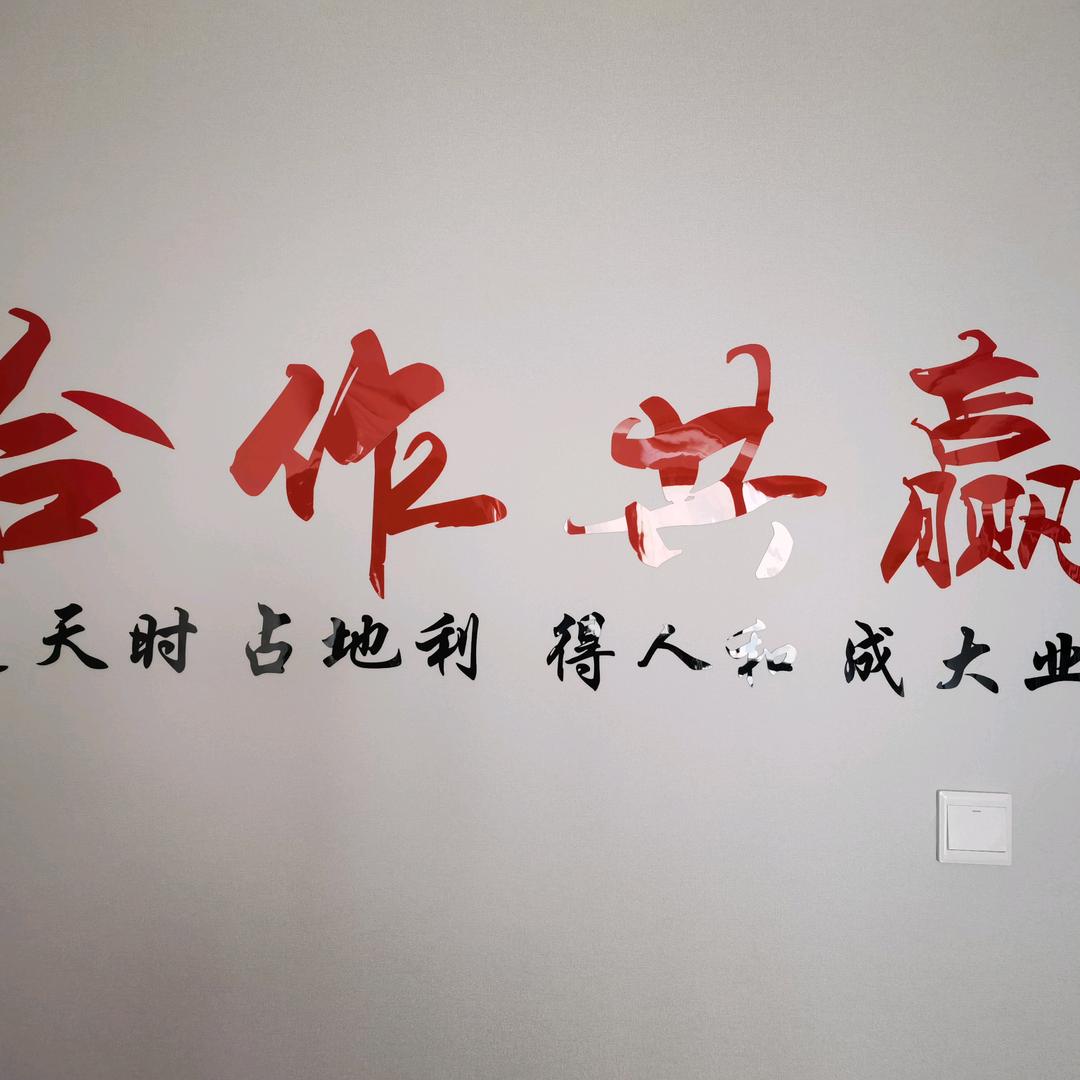 合作共赢
天时 占地利 得人和 成大业